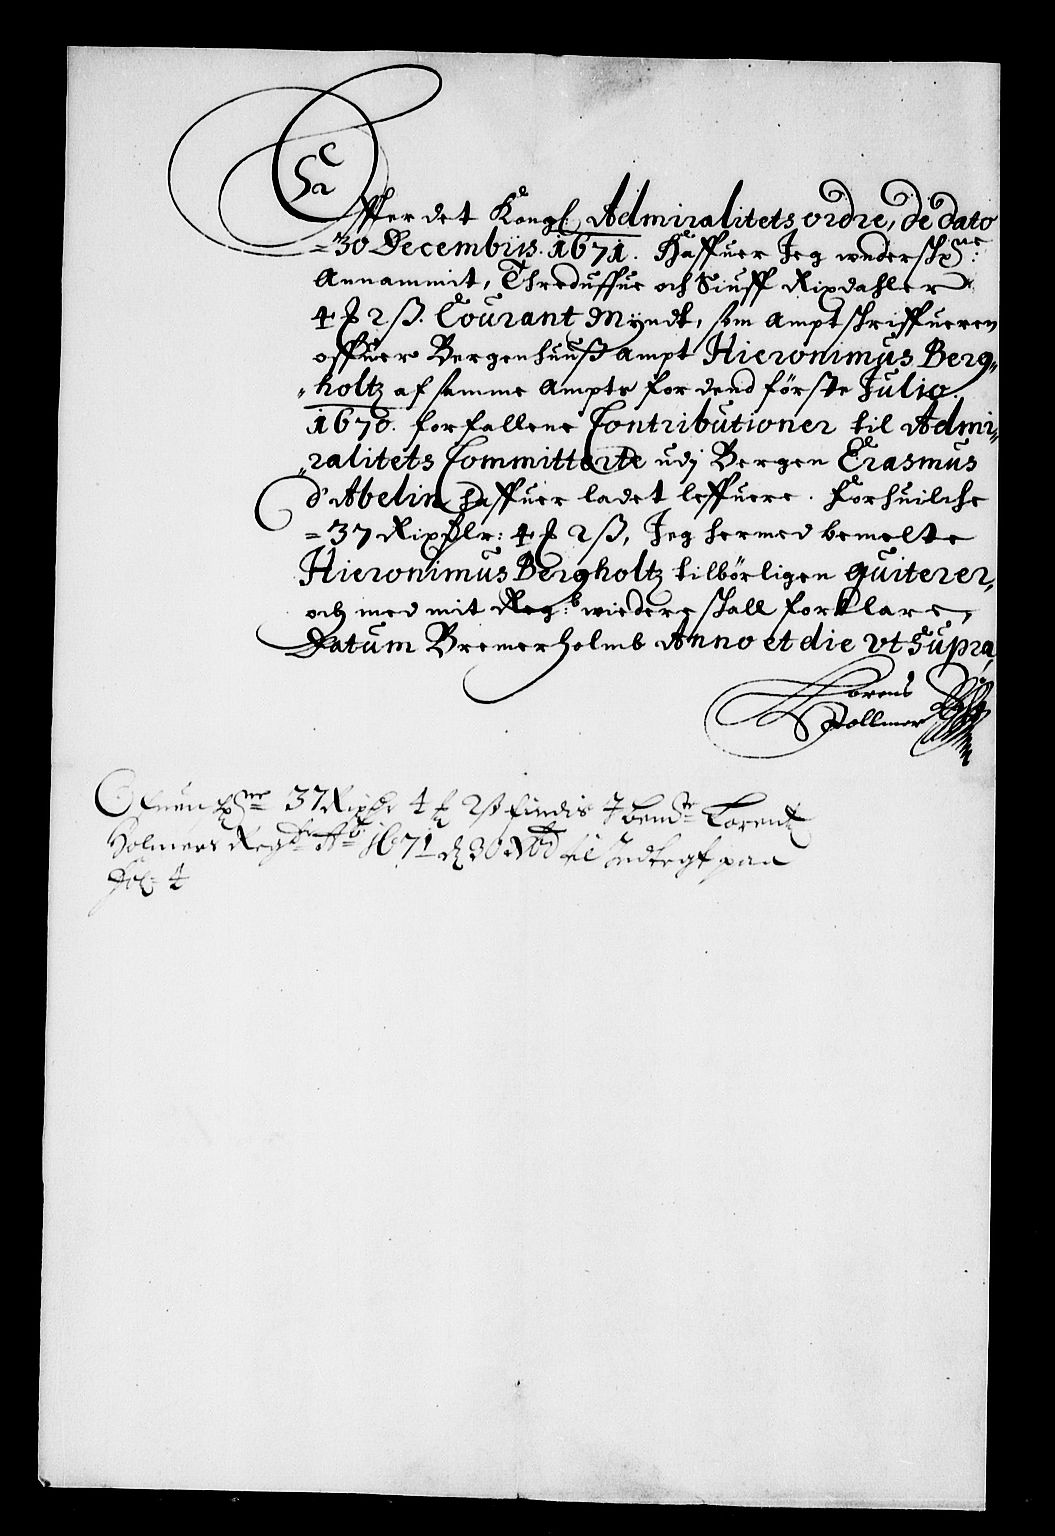 Effter det Kongl: Admiralitets ordre, de dato
30 Decembijs. 1671. Haffuer Jeg underschr:ne
Annammit, Threduffue och Siuff Rixdahler
4 ₰ 2 ß. Courant Myndt, som Amptschriffueren
offuer Bergenhuuß ampt Hieronimus Berg-
holtz af samme Ampts for dend förste Julio.
1670. forfallene Contributioner til Admi-
ralitets Committerte udj Bergen Erasmus
d'Abelin haffuer ladet leffuere. Forhuilche
37 Rixdlr: 4 ₰ 2 ß, Jeg hermed bemelte
Hieronimus Bergholtz tilbörligen quiterer,
och med mit Reg:b wiedere skall forklare,
Datum Bremerholmb Anno et die vt Supra
Lorens
Hollmer
37 Rixdr 4 2 ß findis J bemte Lorentz
Holmers Reg 1671 30 til Indtegt paa
Fol: 4